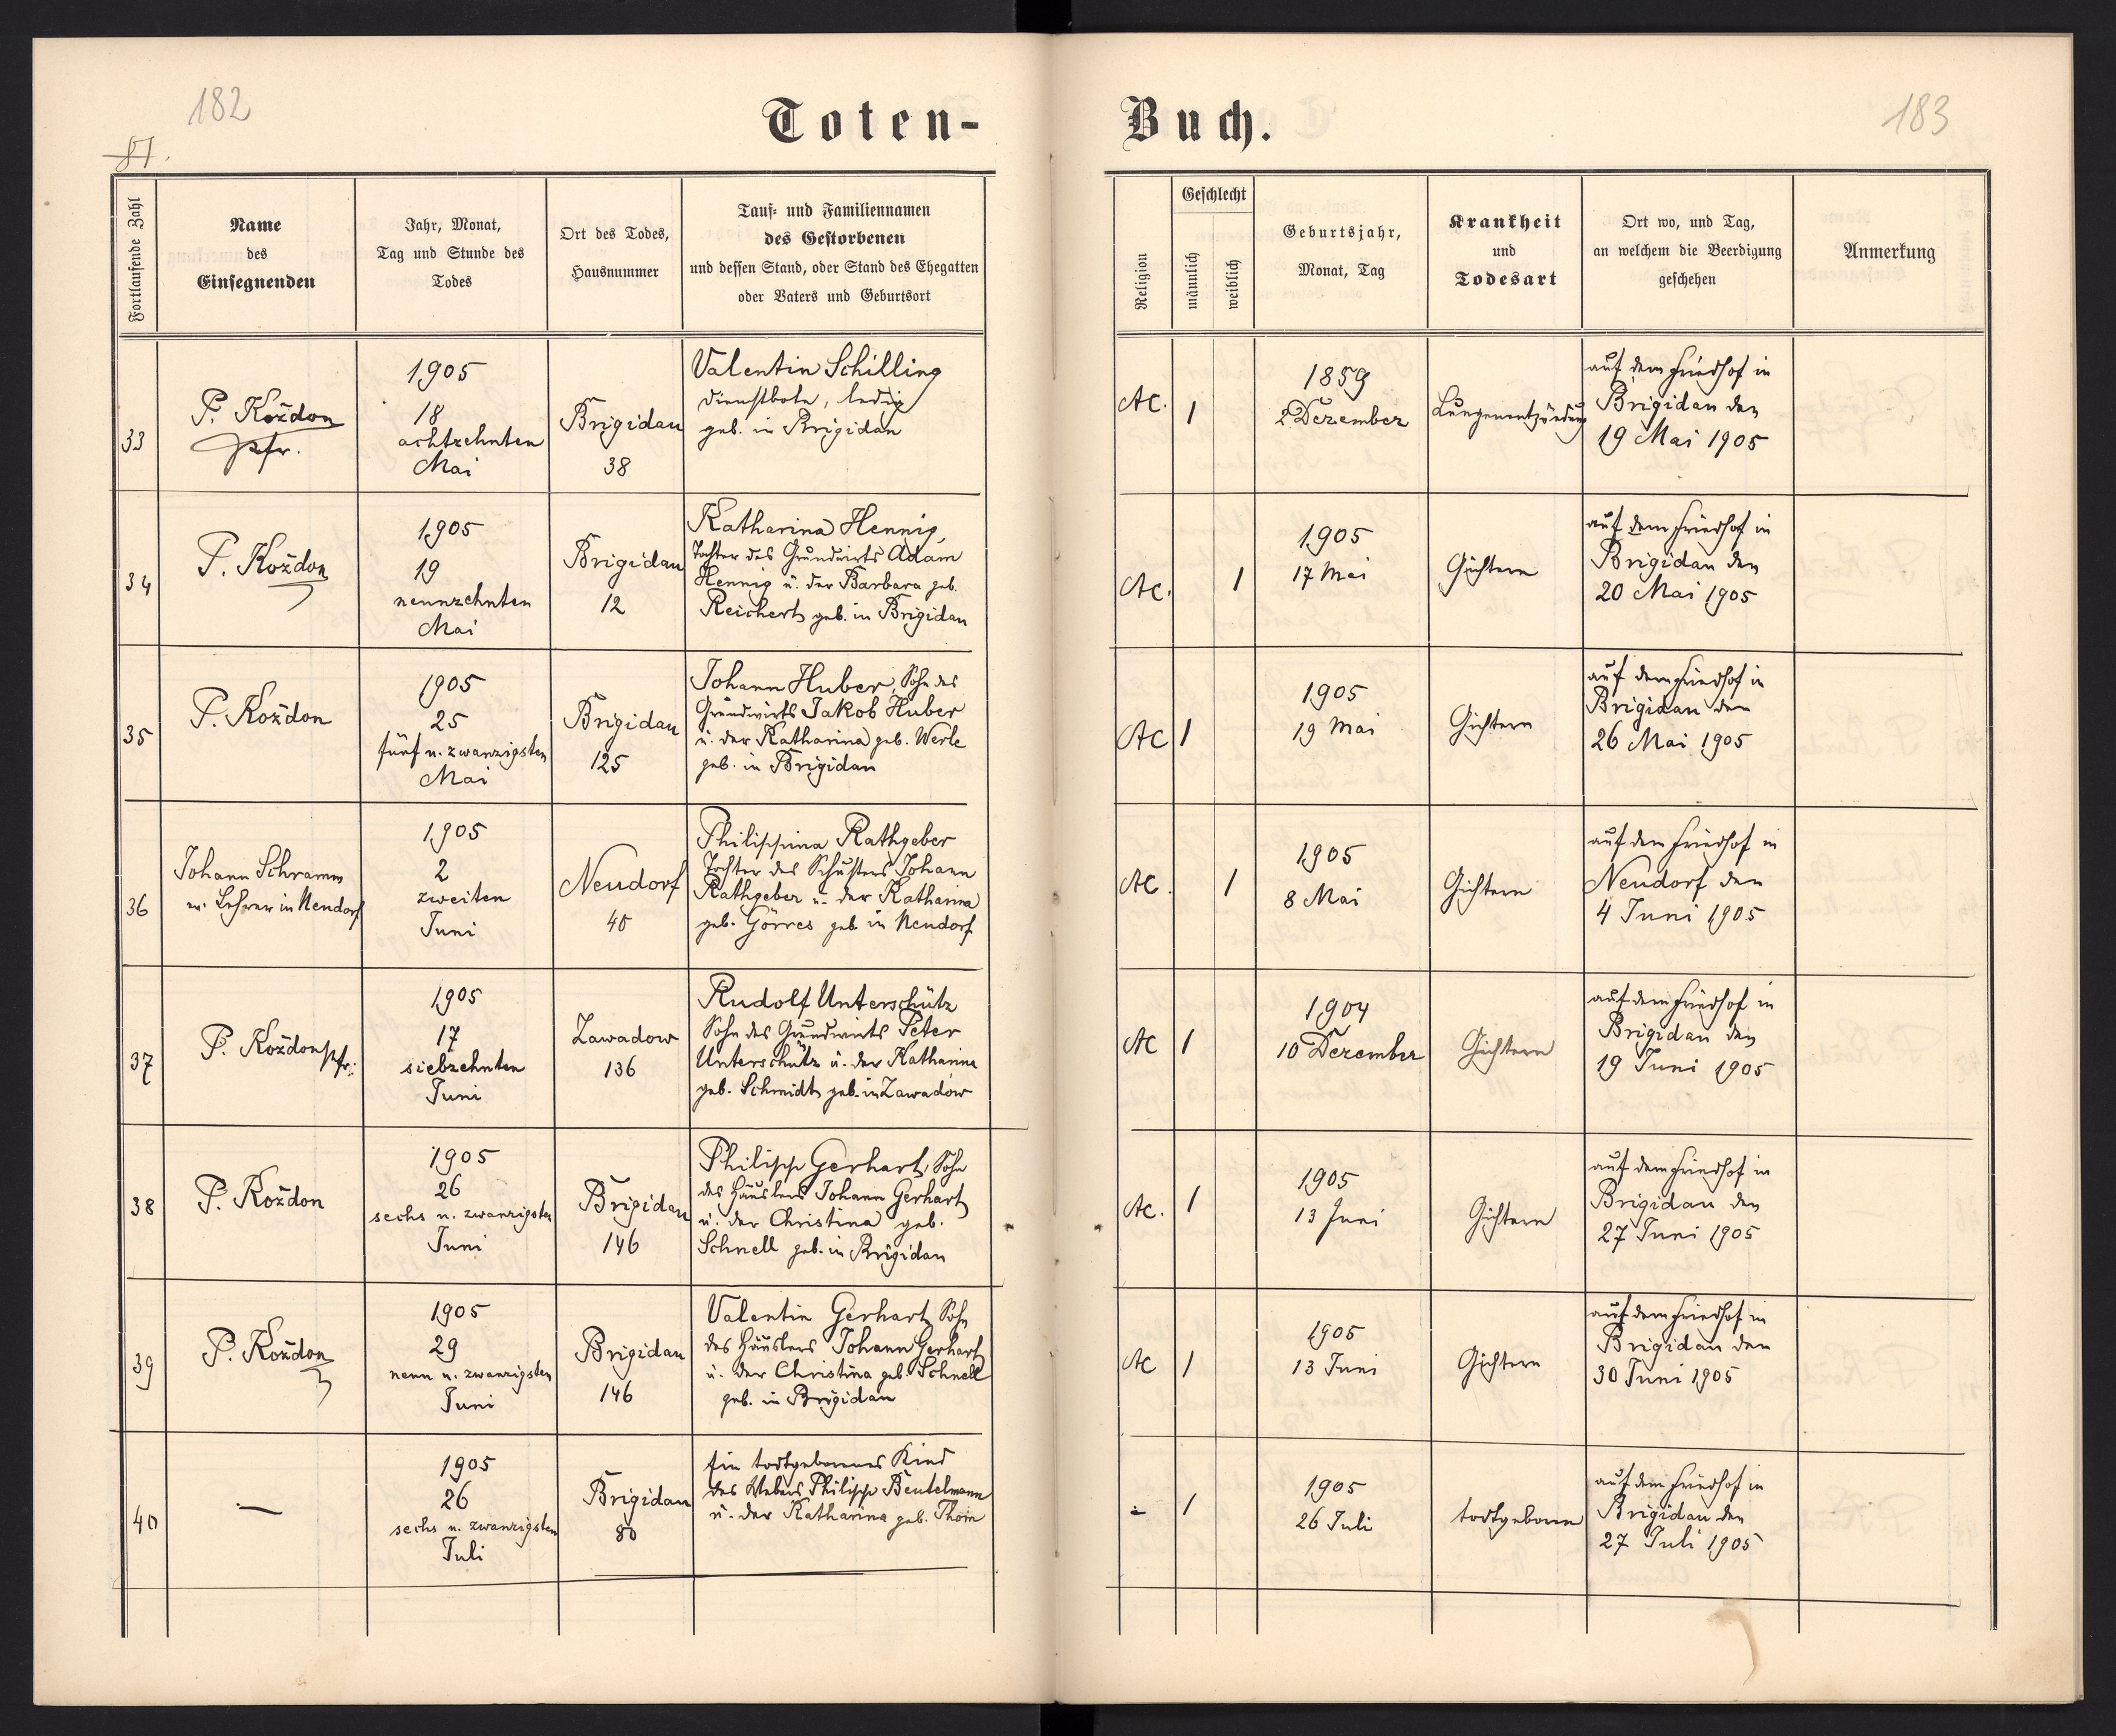 182
Toten-
81.
Fortlaufende Zahl
Name
des
Einsegnenden
Jahr, Monat,
Tag und Stunde des
Todes
Ort des Todes,
Hausnummer
Tauf- und Familiennamen
des Gestorbenen
und dessen Stand, oder Stand des Ehegatten
oder Vaters und Geburtsort
33
P. Koždon
Pfr.
1905
18
achtzehnten
Mai
Brigidau
38
Valentin Schilling
Dienstbote, ledig
geb. in Brigidau
34
P. Koždon
1905
19
neunzehnten
Mai
Brigidau
12
Katharina Hennig,
Tochter des Grundwirts Adam
Hennig u. der Barbara geb.
Reichert, geb. in Brigidau
35
P. Koždon
1905
25
fünf u. zwanzigsten
Mai
Brigidau
125
Johann Huber, Sohn des
Grundwirts Jakob Huber
u. der Katharina geb. Werle
geb. in Brigidau
36
Johann Schramm
ev. Lehrer in Neudorf
1905
2
zweiten
Juni
Neudorf
40
Philippina Rathgeber
Tochter des Schusters Johann
Rathgeber u. der Katharina
geb. Görres geb. in Neudorf
37
P. Koždon Pfr.
1905
17
siebzehnten
Juni
Zawadow
136
Rudolf Unterschütz
Sohn des Grundwirts Peter
Unterschütz u. der Katharina
geb. Schmidt, geb. in Zawadów
38
P. Koždon
1905
26
sechs u. zwanzigsten
Juni
Brigidau
146
Philipp Gerhart, Sohn
des Häuslers Johann Gerhart
u. der Christina geb.
Schnell geb. in Brigidau
39
P. Koždon
1905
29
neun u. zwanzigsten
Juni
Brigidau
146
Valentin Gerhart, Sohn
des Häuslers Johann Gerhart
u. der Christina geb. Schnell
geb. in Brigidau
40
—
1905
26
sechs u. zwanzigsten
Juli
Brigidau
80
Ein todtgeborenes Kind
des Webers Philipp Beutelmann
u. der Katharina geb. Thom
Buch.
183
Religion
Geschlecht
männlich
weiblich
Geburtsjahr,
Monat, Tag
Krankheit
und
Todesart
Ort wo, und Tag,
an welchem die Beerdigung
geschehen
Anmerkung
AC.
1
1859
2 Dezember
Lungenentzündung
auf dem Friedhof in
Brigidau den
19 Mai 1905
AC.
1
1905
17 Mai
Gichtern
auf dem Friedhof in
Brigidau den
20 Mai 1905
AC
1
1905
19 Mai
Gichtern
auf dem Friedhof in
Brigidau den
26 Mai 1905
AC.
1
1905
8 Mai
Gichtern
auf dem Friedhof in
Neudorf den
4 Juni 1905
AC
1
1904
10 Dezember
Gichtern
auf dem Friedhof in
Brigidau den
19 Juni 1905
AC.
1
1905
13 Juni
Gichtern
auf dem Friedhof in
Brigidau den
27 Juni 1905
AC
1
1905
13 Juni
Gichtern
auf dem Friedhof in
Brigidau den
30 Juni 1905
-
1
1905
26 Juli
todtgeboren
auf dem Friedhof in
Brigidau den
27 Juli 1905